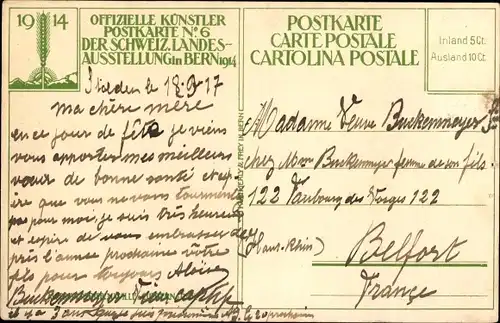 1914
OFFIZIELLE KÜNSTLER
POSTKARTE Nº 6
DER SCHWEIZ. LANDES-
AUSSTELLUNG in BERN 1914
POSTKARTE
CARTE POSTALE
CARTOLINA POSTALE
Inland 5 Ct.
Ausland 10 Ct.
le 18.9.17
ma chère mère
en ce jour de fête je viens
vous apporter mes meilleurs
vœux de bonne santé et
que vous ne vous tourmente
pas pour moi, je suis très heureux
et espère de vous embrasser
près l'année prochaine vôtre
fils pour toujours Aloise
Buskenmeyer
Madame Veuve Buskenmeyer
chez Mme Buskenmeyer femme de son fils
122 Faubourg des Vosges 122
(Haut-Rhin)
Belfort
France